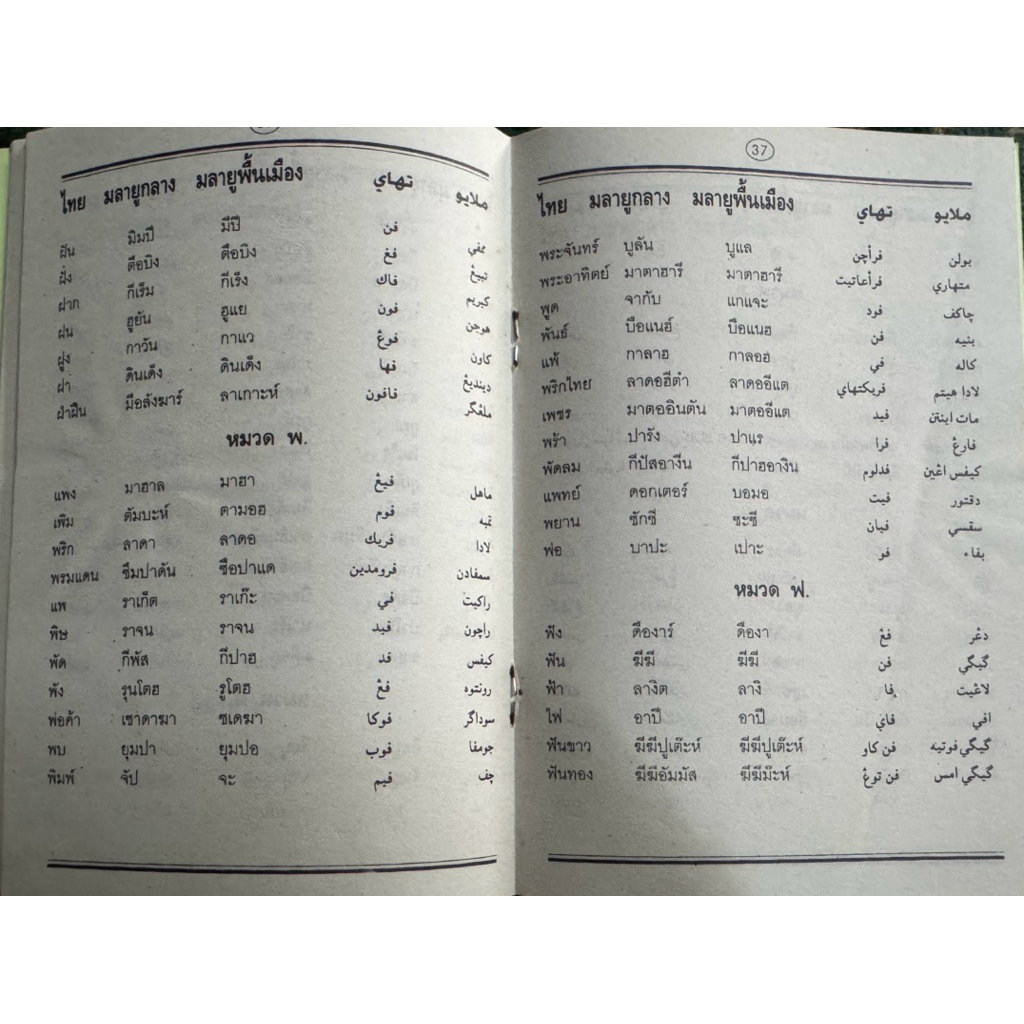 ไทย มลายูกลาง มลายูพื้นเมือง تهاي ملايو
ฝัน มิมปี มีปี فن ممفي
ฝั่ง ตือบิง ตือบิง فڠ تبيڠ
ฝาก กีเร็ม กีเร็ง فاك كيريم
ฝน ฮูยัน ฮูแย فون هوجن
ฝูง กาวัน กาแว فوڠ كاون
ฝา ดินเด็ง ดินเด็ง فها ديندیڠ
ฝ่าฝืน มือลังฆาร์ ลาเกาะห์ فافون ملڠݢر
หมวด พ.
แพง มาฮาล มาฮา فيڠ ماهل
เพิ่ม ตัมบะห์ ตามอฮ فوم تمبه
พริก ลาดา ลาดอ فريك لادا
พรมแดน ซึมปาดัน ซือปาแด فرومدين سمفادن
แพ ราเก็ต ราเก๊ะ في راكيت
พิษ ราจน ราจน فيد راچون
พัด กีพัส กีปาฮ فد كيفس
พัง รุนโตฮ รูโตฮ فڠ رونتوه
พ่อค้า เซาดาฆา ซเดฆา فوكا سوداݢر
พบ ยุมปา ยุมปอ فوب جومفا
พิมพ์ จัป จะ فيم چف
37
ไทย มลายูกลาง มลายูพื้นเมือง تهاي ملايو
พระจันทร์ บูลัน บูแล فراچن بولن
พระอาทิตย์ มาตาฮารี มาตาฮารี فراءاتيت متهاري
พูด จากับ แกแจะ فود چاكف
พันธ์ บือแนฮ์ บือแนฮ فن بنيه
แพ้ กาลาฮ กาลอฮ في كاله
พริกไทย ลาดอฮีตำ ลาดออีแต فريكتهاي لادا هيتم
เพชร มาตออินตัน มาตออีแต فيد مات اينتن
พร้า ปารัง ปาแร فرا فارڠ
พัดลม กีปัสอางีน กีปาฮอางิน فدلوم كيفس اڠين
แพทย์ ดอกเตอร์ บอมอ فيت دقتور
พยาน ซักซี ซะซี فيان سقسي
พ่อ บาปะ เปาะ فو بفاء
หมวด ฟ.
ฟัง ดืองาร์ ดืองา فڠ دڠر
ฟัน ฆีฆี ฆีฆี فن ݢيݢي
ฟ้า ลางิต ลางิ فا لاڠيت
ไฟ อาปี อาปี فاي افي
ฟันขาว ฆีฆีปูเต๊ะห์ ฆีฆีปูเต๊ะห์ فن كاو ݢيݢي فوتيه
ฟันทอง ฆีฆีอัมมัส ฆีฆีม๊ะห์ فن توڠ ݢيݢي امس